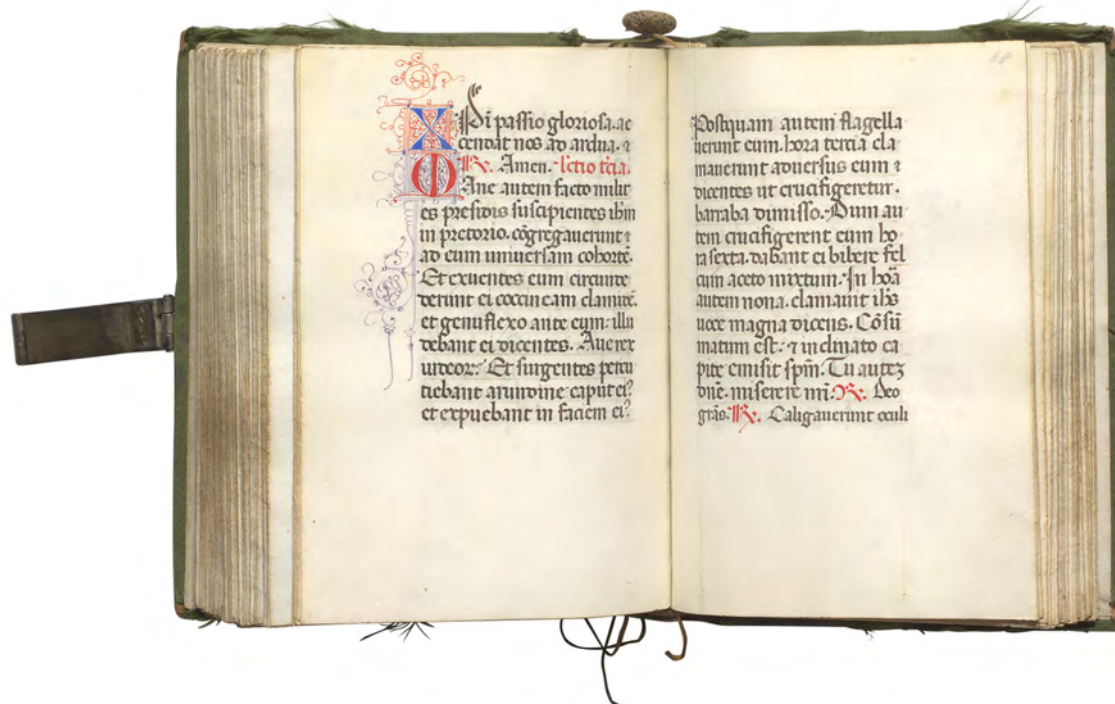 Xpi passio gloriosa. ac
cendat nos ad ardua. ⁊
℞. Amen. lectio tercia.
Mane autem facto milit
es presidis suscipientes ihm
in pretorio. cõgregauerunt ⁊
ad eum uniuersam cohortẽ.
Et exuentes eum circunde
derunt ei coccineam clamidẽ.
et genuflexo ante eum: illu
debant ei dicentes. Aue rex
iudeor: Et surgentes percu
tiebant arundine caput ei?
et expuebant in faciem ei?
68
Postquam autem flagella
uerunt eum. hora tercia cla
mauerunt aduersus eum ⁊
dicentes ut crucifigeretur.
barraba dimisso. Dum au
tem crucifigerent eum ho
ra sexta. dabant ei bibere fel
cum aceto mixtum. In hoã
autem nona. clamauit ihs
uoce magna dicens. Cõsũ
matum est: ⁊ inclinato ca
pite emisit spm̃. Tu autez
dñe. miserere mĩ. ℞. Deo
grãs. ℞. Caligauerunt oculi